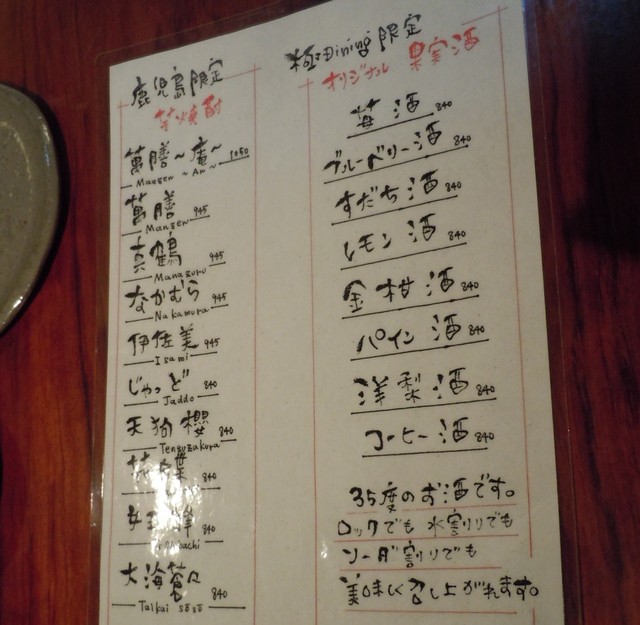 鹿児島限定
芋焼酎
萬膳～庵～ 1050
Manzen ～An～
萬膳 945
Manzen
真鶴 945
Manazuru
なかむら 945
Nakamura
伊佐美 945
Isami
じゃっど 840
Jaddo
天狗櫻 840
Tenguzakura
840
840
大海蒼々 840
Taikai
極Dining限定
オリジナル 果実酒
苺酒 840
ブルーベリー酒 840
すだち酒 840
レモン酒 840
金柑酒 840
パイン酒 840
洋梨酒 840
コーヒー酒 840
35度のお酒です。
ロックでも水割りでも
ソーダ割りでも
美味しく召し上がれます。